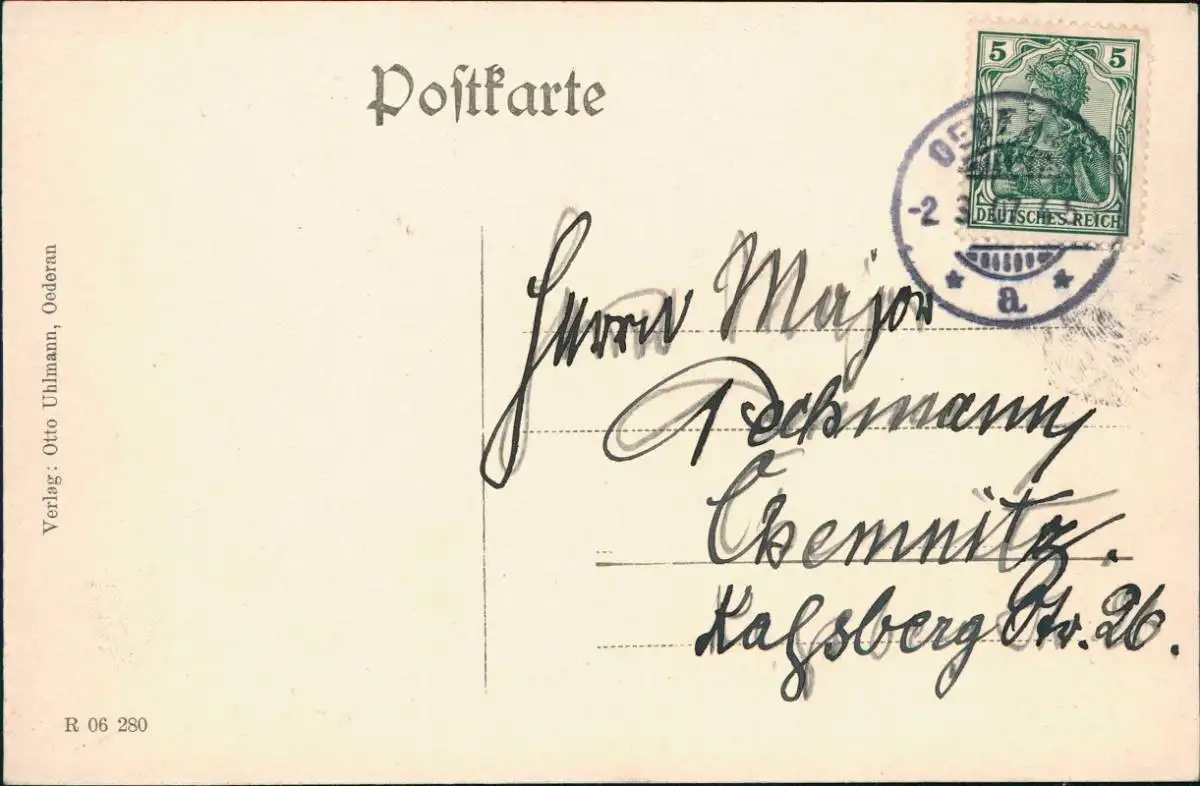 Postkarte
5 5
DEUTSCHES REICH
-2 3 07
* a *
Herrn Major
Pechmann
Chemnitz.
Str. 26.
Verlag: Otto Uhlmann, Oederan
R 06 280